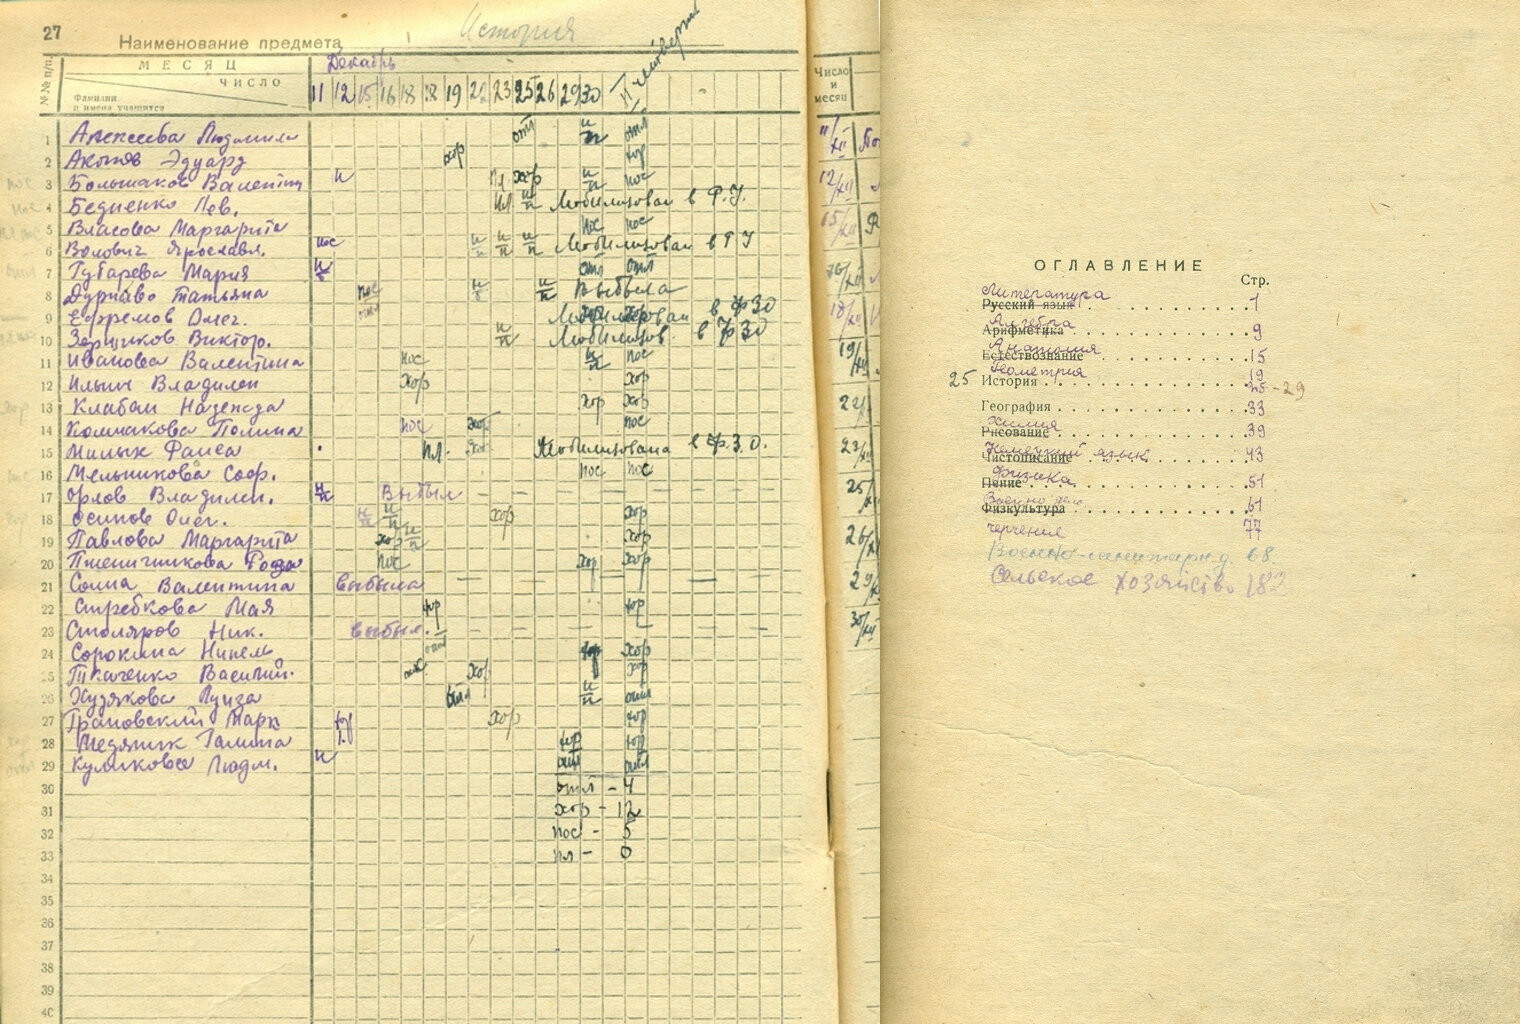 27
Наименование предмета История
МЕСЯЦ Декабрь II четверть
ЧИСЛО 11 12 15 16 18 18 19 22 23 25 26 29 30
№№ п/п. Фамилии и имена учащихся
Число и месяц
1 Алексеева Людмила отл н/п отл
2 Акопов Эдуард хор хор
3 Большаков Валентин н пл хор н/п пос
4 Бедненко Лев. пл н/п Мобилизован в Р.У.
5 Власова Маргарита пос пос
6 Волович Ярославл. пос н/п н/п н/п Мобилизован в РУ
7 Губарева Мария н/п отл отл
8 Дурново Татьяна пос н/п Выбыла
9 Ефремов Олег. Мобилизован в ФЗО
10 Зернтков Виктор. н/п Мобилизов. в ФЗО
11 Иванова Валентина пос н/п пос
12 Ильин Владилен хор хор
13 Клабан Надежда хор хор
14 Колпакова Полина пос хор пос
15 Милык Раиса пл. хор Мобилизована в ф.З.О.
16 Мельникова Соф. пос пос
17 Орлов Владилен. н/п Выбыл
18 Осипов Олег. н/п н/п хор хор
19 Павлова Маргарита хор н/п хор
20 Пшеничникова Роза пос хор хор
21 Соша Валентина выбыла
22 Стребкова Мая хор хор
23 Столяров Ник. выбыл.
24 Сорокина Нинель отл хор хор
25 Ткаченко Василий. хор хор
26 Худякова Луиза отл н/п отл
27 Грановский Марк хор хор
28 Медяник Галина хор хор
29 Куликова Людм. н отл отл
30 отл – 4
31 хор – 12
32 пос – 5
33 пл – 0
34
35
36
37
38
39
40
11/XII
12/XII
15/XII
16/XII
18/XII
19/XII
22/
23/XII
25/
26/XII
29/
30/XII
ОГЛАВЛЕНИЕ
Стр.
Литература
Русский язык 1
Алгебра
Арифметика 9
Анатомия
Естествознание 15
Геометрия 19
25 История 25-29
География 33
Химия
Рисование 39
Немецкий язык
Чистописание 43
Физика
Пение 51
Военно дело
Физкультура 61
черчение 77
Военно-санитарн. д. 68.
Сельское хозяйство 182